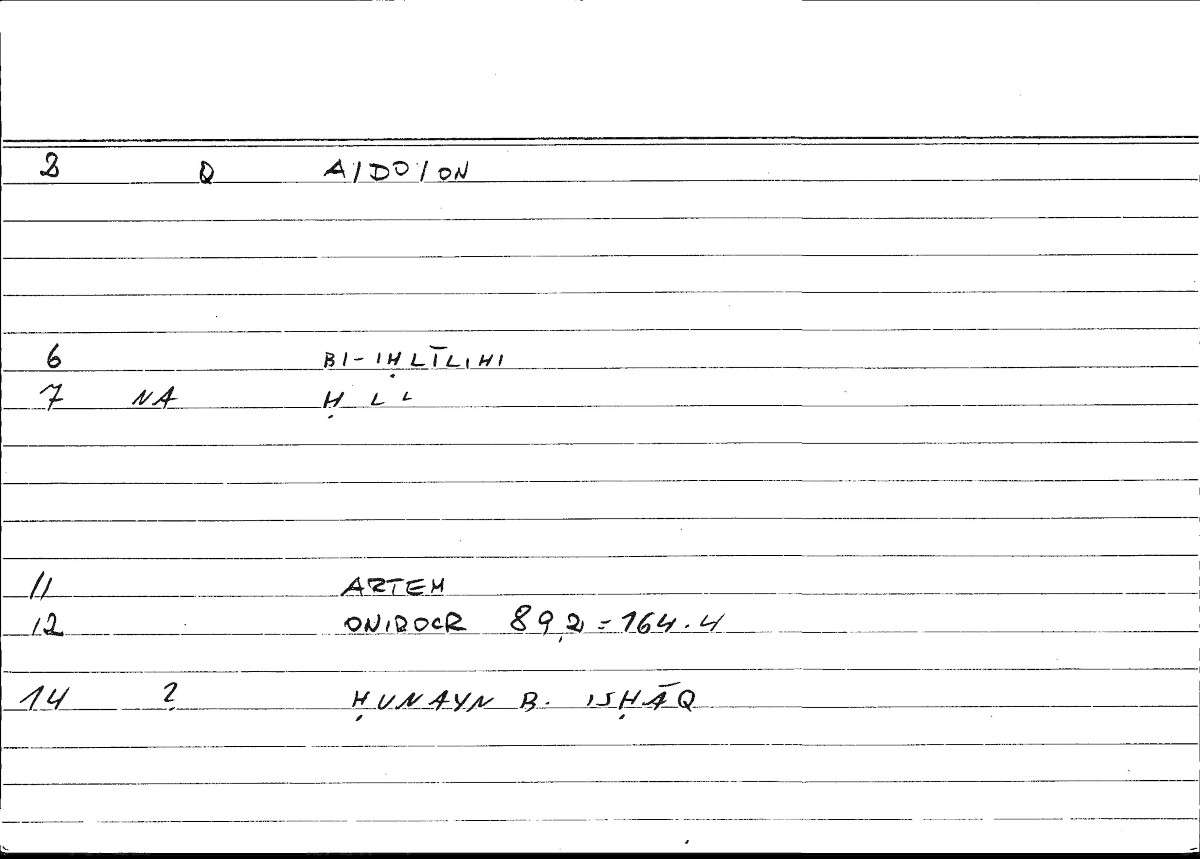 2 Q A/DO/ON
6 BI-IḤLĪLIHI
7 NA Ḥ L L
11 ARTEM
12 ONIROCR 89,2 = 164.4
14 ? ḤUNAYN B. ISḤĀQ